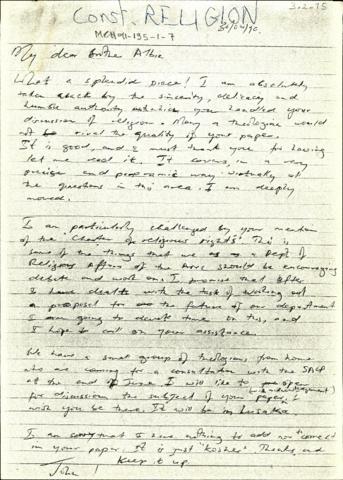 3.2015
Const. RELIGION
MCH91-195-1-7
30/04/90.
My dear brother Albie
What a splendid piece! I am absolutely
taken aback by the sincerity, delicacy and
humble authority with which you handled your
discussion of religion. Many a theologian would
not rival the quality of your paper.
It is good, and I must thank you for having
let me read it. It covers, in a very
precise and programmatic way, virtually all
the questions in this area. I am deeply
moved.
I am particularly challenged by your mention
of the "Charter of religious rights". This is
some of the things that we as a Dept of
Religious Affairs of the should be encouraging
debate and work on. I promise that after
I have dealt with the task of working out
a proposal for the future of our department
I am going to devote time on this, and
I hope to call on your assistance.
We have a small group of theologians from home
who are coming for a consultation with the SACP
at the end of June. I will like to
for discussion the subject of your paper. I
wish you be there. It will be in Lusaka
I am sorry that I have nothing to add nor "correct"
in your paper. It is just "kosher". Thanks, and
Keep it up.
John